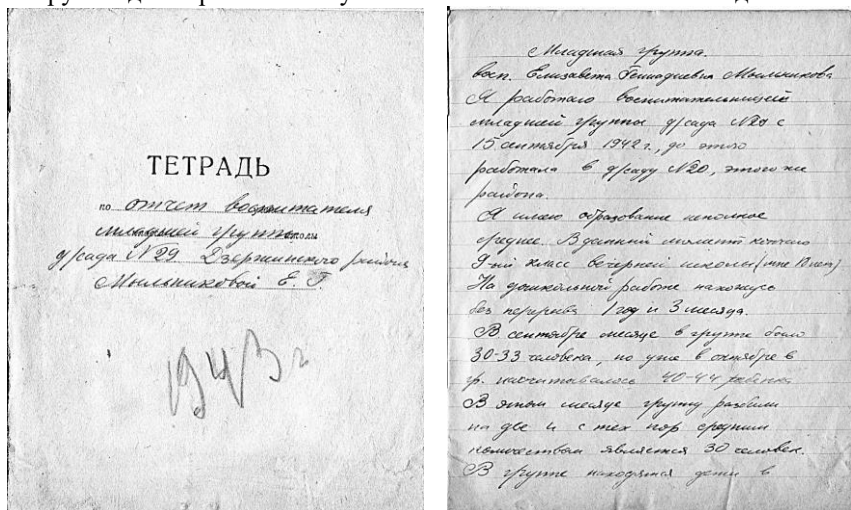 ТЕТРАДЬ
по отчет воспитателя
младшей группы школы
д/сада №29 Дзержинского района
Мыльниковой Е. Г.
1943 г
Младшая группа.
Восп. Елизавета Геннадиевна Мыльникова
Я работаю воспитательницей
младшей группы д/сада с
15 сентября 1942 г., до этого
работала в д/саду №20, этого же
района.
Я имею образование неполное
среднее. В данный момент кончаю
9-ый класс вечерней школы (мне лет)
На дошкольной работе нахожусь
без перерыва 1 год и 3 месяца.
В сентябре месяце в группе было
30-33 человека, но уже в октябре в
гр. насчитывалось 40-44 ребенка
В этом месяце группу разбили
на две и с тех пор средним
количеством является 30 человек.
В группе находятся дети в